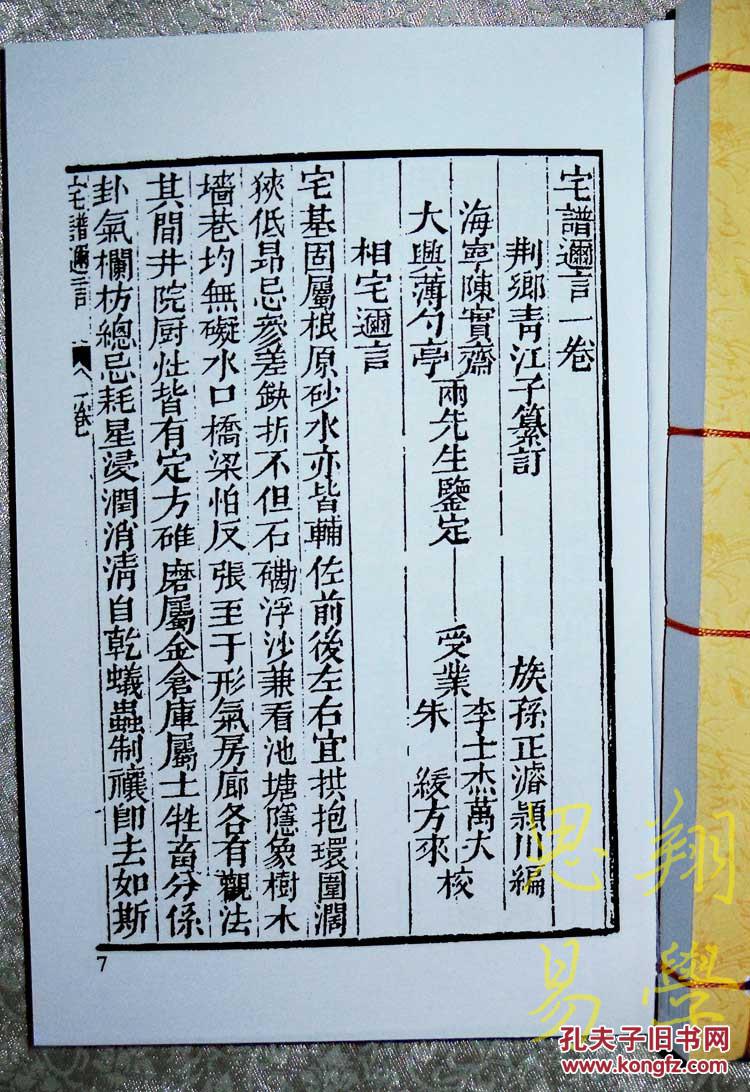 宅譜邇言一卷
荆鄉青江子纂訂
族孫正濬穎川編
海寧陳實齋
大興薄勺亭
兩先生鑒定
受業
李士杰萬夫
朱 綬方來
校
相宅邇言
宅基固屬根原砂水亦皆輔佐前後左右宜拱抱環圍濶
狹低昂忌參差缺折不但石磡浮沙兼看池塘隱象樹木
墻巷均無礙水口橋梁怕反張至于形氣房廊各有觀法
其間井院厨灶皆有定方碓磨屬金倉庫屬土牲畜分係
卦氣欄枋總忌耗星浸潤消淸自乾蟻蟲制禳即去如斯
宅譜邇言
一卷
7
思翔
易學
孔夫子旧书网
www.kongfz.com